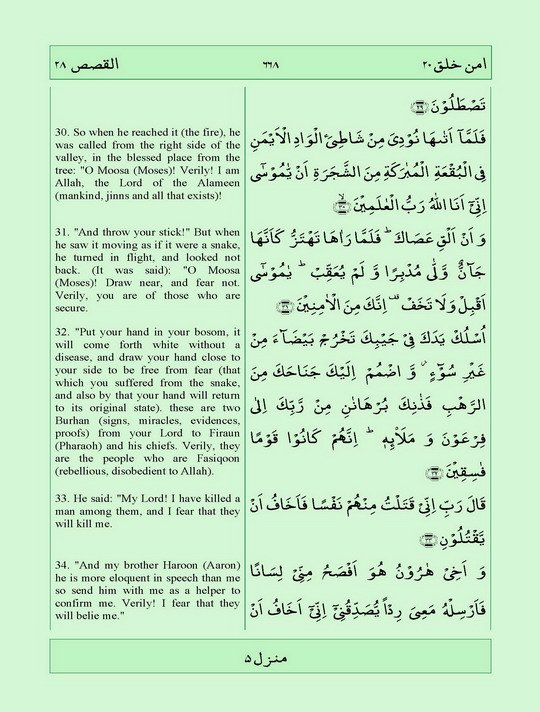 القصص ٢٨
٦٦٨
امن خلق ٢٠
30. So when he reached it (the fire), he
was called from the right side of the
valley, in the blessed place from the
tree: "O Moosa (Moses)! Verily! I am
Allah, the Lord of the Alameen
(mankind, jinns and all that exists)!
31. "And throw your stick!" But when
he saw it moving as if it were a snake,
he turned in flight, and looked not
back. (It was said): "O Moosa
(Moses)! Draw near, and fear not.
Verily, you are of those who are
secure.
32. "Put your hand in your bosom, it
will come forth white without a
disease, and draw your hand close to
your side to be free from fear (that
which you suffered from the snake,
and also by that your hand will return
to its original state). these are two
Burhan (signs, miracles, evidences,
proofs) from your Lord to Firaun
(Pharaoh) and his chiefs. Verily, they
are the people who are Fasiqoon
(rebellious, disobedient to Allah).
33. He said: "My Lord! I have killed a
man among them, and I fear that they
will kill me.
34. "And my brother Haroon (Aaron)
he is more eloquent in speech than me
so send him with me as a helper to
confirm me. Verily! I fear that they
will belie me."
تَصْطَلُوْنَ ﴿٢٩﴾
فَلَمَّاۤ اَتٰىهَا نُوْدِیَ مِنْ شَاطِئِ الْوَادِ الْاَیْمَنِ
فِی الْبُقْعَةِ الْمُبٰرَكَةِ مِنَ الشَّجَرَةِ اَنْ یّٰمُوْسٰۤی
اِنِّیْۤ اَنَا اللّٰهُ رَبُّ الْعٰلَمِیْنَ ﴿٣٠﴾
وَ اَنْ اَلْقِ عَصَاكَ ؕ فَلَمَّا رَاٰهَا تَهْتَزُّ كَاَنَّهَا
جَآنٌّ وَّلّٰی مُدْبِرًا وَّ لَمْ یُعَقِّبْ ؕ یٰمُوْسٰۤی
اَقْبِلْ وَ لَا تَخَفْ ۟ اِنَّكَ مِنَ الْاٰمِنِیْنَ ﴿٣١﴾
اُسْلُكْ یَدَكَ فِیْ جَیْبِكَ تَخْرُجْ بَیْضَآءَ مِنْ
غَیْرِ سُوْٓءٍ ۫ وَّ اضْمُمْ اِلَیْكَ جَنَاحَكَ مِنَ
الرَّهْبِ فَذٰنِكَ بُرْهَانٰنِ مِنْ رَّبِّكَ اِلٰی
فِرْعَوْنَ وَ مَلَا۟ئِهٖ ؕ اِنَّهُمْ كَانُوْا قَوْمًا
فٰسِقِیْنَ ﴿٣٢﴾
قَالَ رَبِّ اِنِّیْ قَتَلْتُ مِنْهُمْ نَفْسًا فَاَخَافُ اَنْ
یَّقْتُلُوْنِ ﴿٣٣﴾
وَ اَخِیْ هٰرُوْنُ هُوَ اَفْصَحُ مِنِّیْ لِسَانًا
فَاَرْسِلْهُ مَعِیَ رِدْاً یُّصَدِّقُنِیْۤ اِنِّیْۤ اَخَافُ اَنْ
منزل ٥